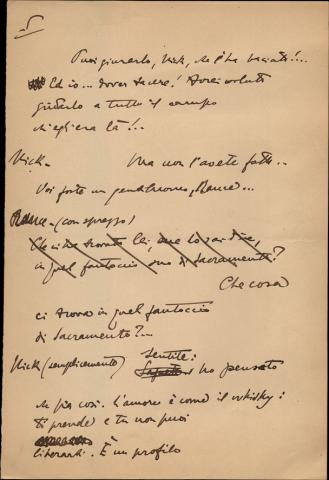 5
Puoi giurarlo, Nick, che l'ha baciato!...
Ed io... dover tacere! Avrei voluto
gridarlo a tutto il campo
chi egli era là!...
Nick. - Ma non l'avete fatto..
Voi forte un gentiluomo, Rance...
Rance - (con sprezzo)
Che ci ha trovato lei, me lo sai dire,
in quel fantoccio di Sacramento?
Che cosa
ci trova in quel fantoccio
di Sacramento?...
Nick (semplicemente) Sentite:
ho pensato
che sia così. L'amore è come il whisky:
ti prende e tu non puoi
liberarti. È un profilo